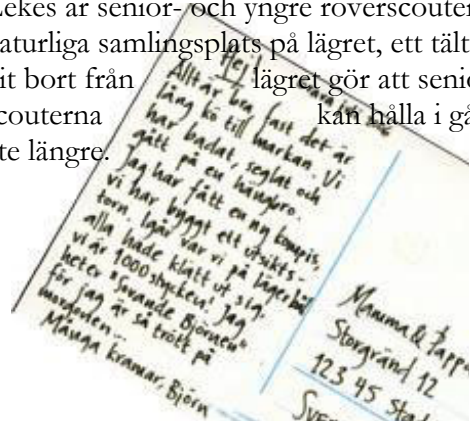 Lekes är senior- och yngre roverscouter
aturliga samlingsplats på lägret, ett tält
it bort från lägret gör att senio
couterna kan hålla i gå
te längre.
Hej! juli
Allt är bra fast det är
lång kö till markan. Vi
har badat, seglat och
gått på en hängbro.
Jag har fått en ny kompis,
vi har byggt ett utsikts-
torn. Igår var vi på lägerbål
alla hade klätt ut sig.
vi är 1000 stycken! Jag
heter "Sovande Björnen"
för jag är så trött på
morgonen...
Många kramar, Björn
Mamma & Pappa
Storgränd 12
123 45 Stad
Sver